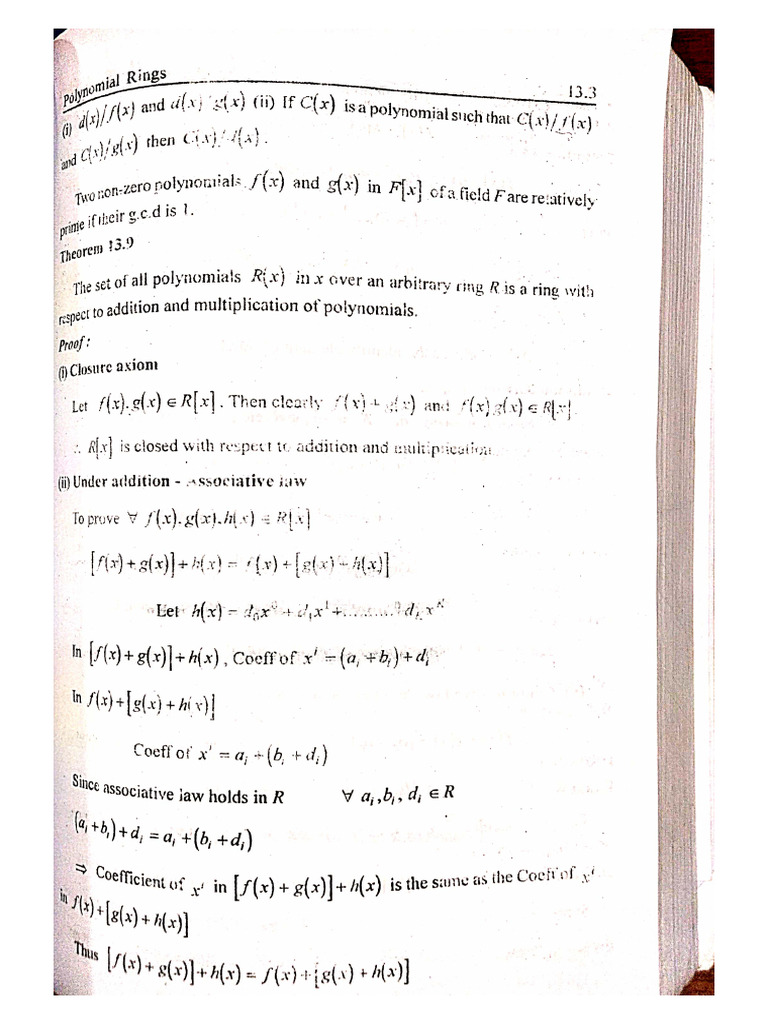 Polynomial Rings 13.3
(i) d(x)/f(x) and d(x) g(x) (ii) If C(x) is a polynomial such that C(x)/f(x)
and C(x)/g(x) then C(x)/d(x).
Two non-zero polynomials f(x) and g(x) in F[x] of a field F are relatively
prime if their g.c.d is 1.
Theorem 13.9
The set of all polynomials R(x) in x over an arbitrary ring R is a ring with
respect to addition and multiplication of polynomials.
Proof :
(i) Closure axiom
Let f(x), g(x) ∈ R[x]. Then clearly f(x) + g(x) and f(x) g(x) ∈ R[x]
∴ R[x] is closed with respect to addition and multiplication
(ii) Under addition - Associative law
To prove ∀ f(x), g(x), h(x) ∈ R[x]
[f(x) + g(x)] + h(x) = f(x) + [g(x) + h(x)]
Let h(x) = d₀x⁰ + d₁x¹ + .......... xᴷ
In [f(x) + g(x)] + h(x), Coeff of xⁱ = (aᵢ + bᵢ) + dᵢ
In f(x) + [g(x) + h(x)]
Coeff of xⁱ = aᵢ + (bᵢ + dᵢ)
Since associative law holds in R ∀ aᵢ, bᵢ, dᵢ ∈ R
(aᵢ + bᵢ) + dᵢ = aᵢ + (bᵢ + dᵢ)
⇒ Coefficient of xⁱ in [f(x) + g(x)] + h(x) is the same as the Coeff of xⁱ
in f(x) + [g(x) + h(x)]
Thus [f(x) + g(x)] + h(x) = f(x) + [g(x) + h(x)]